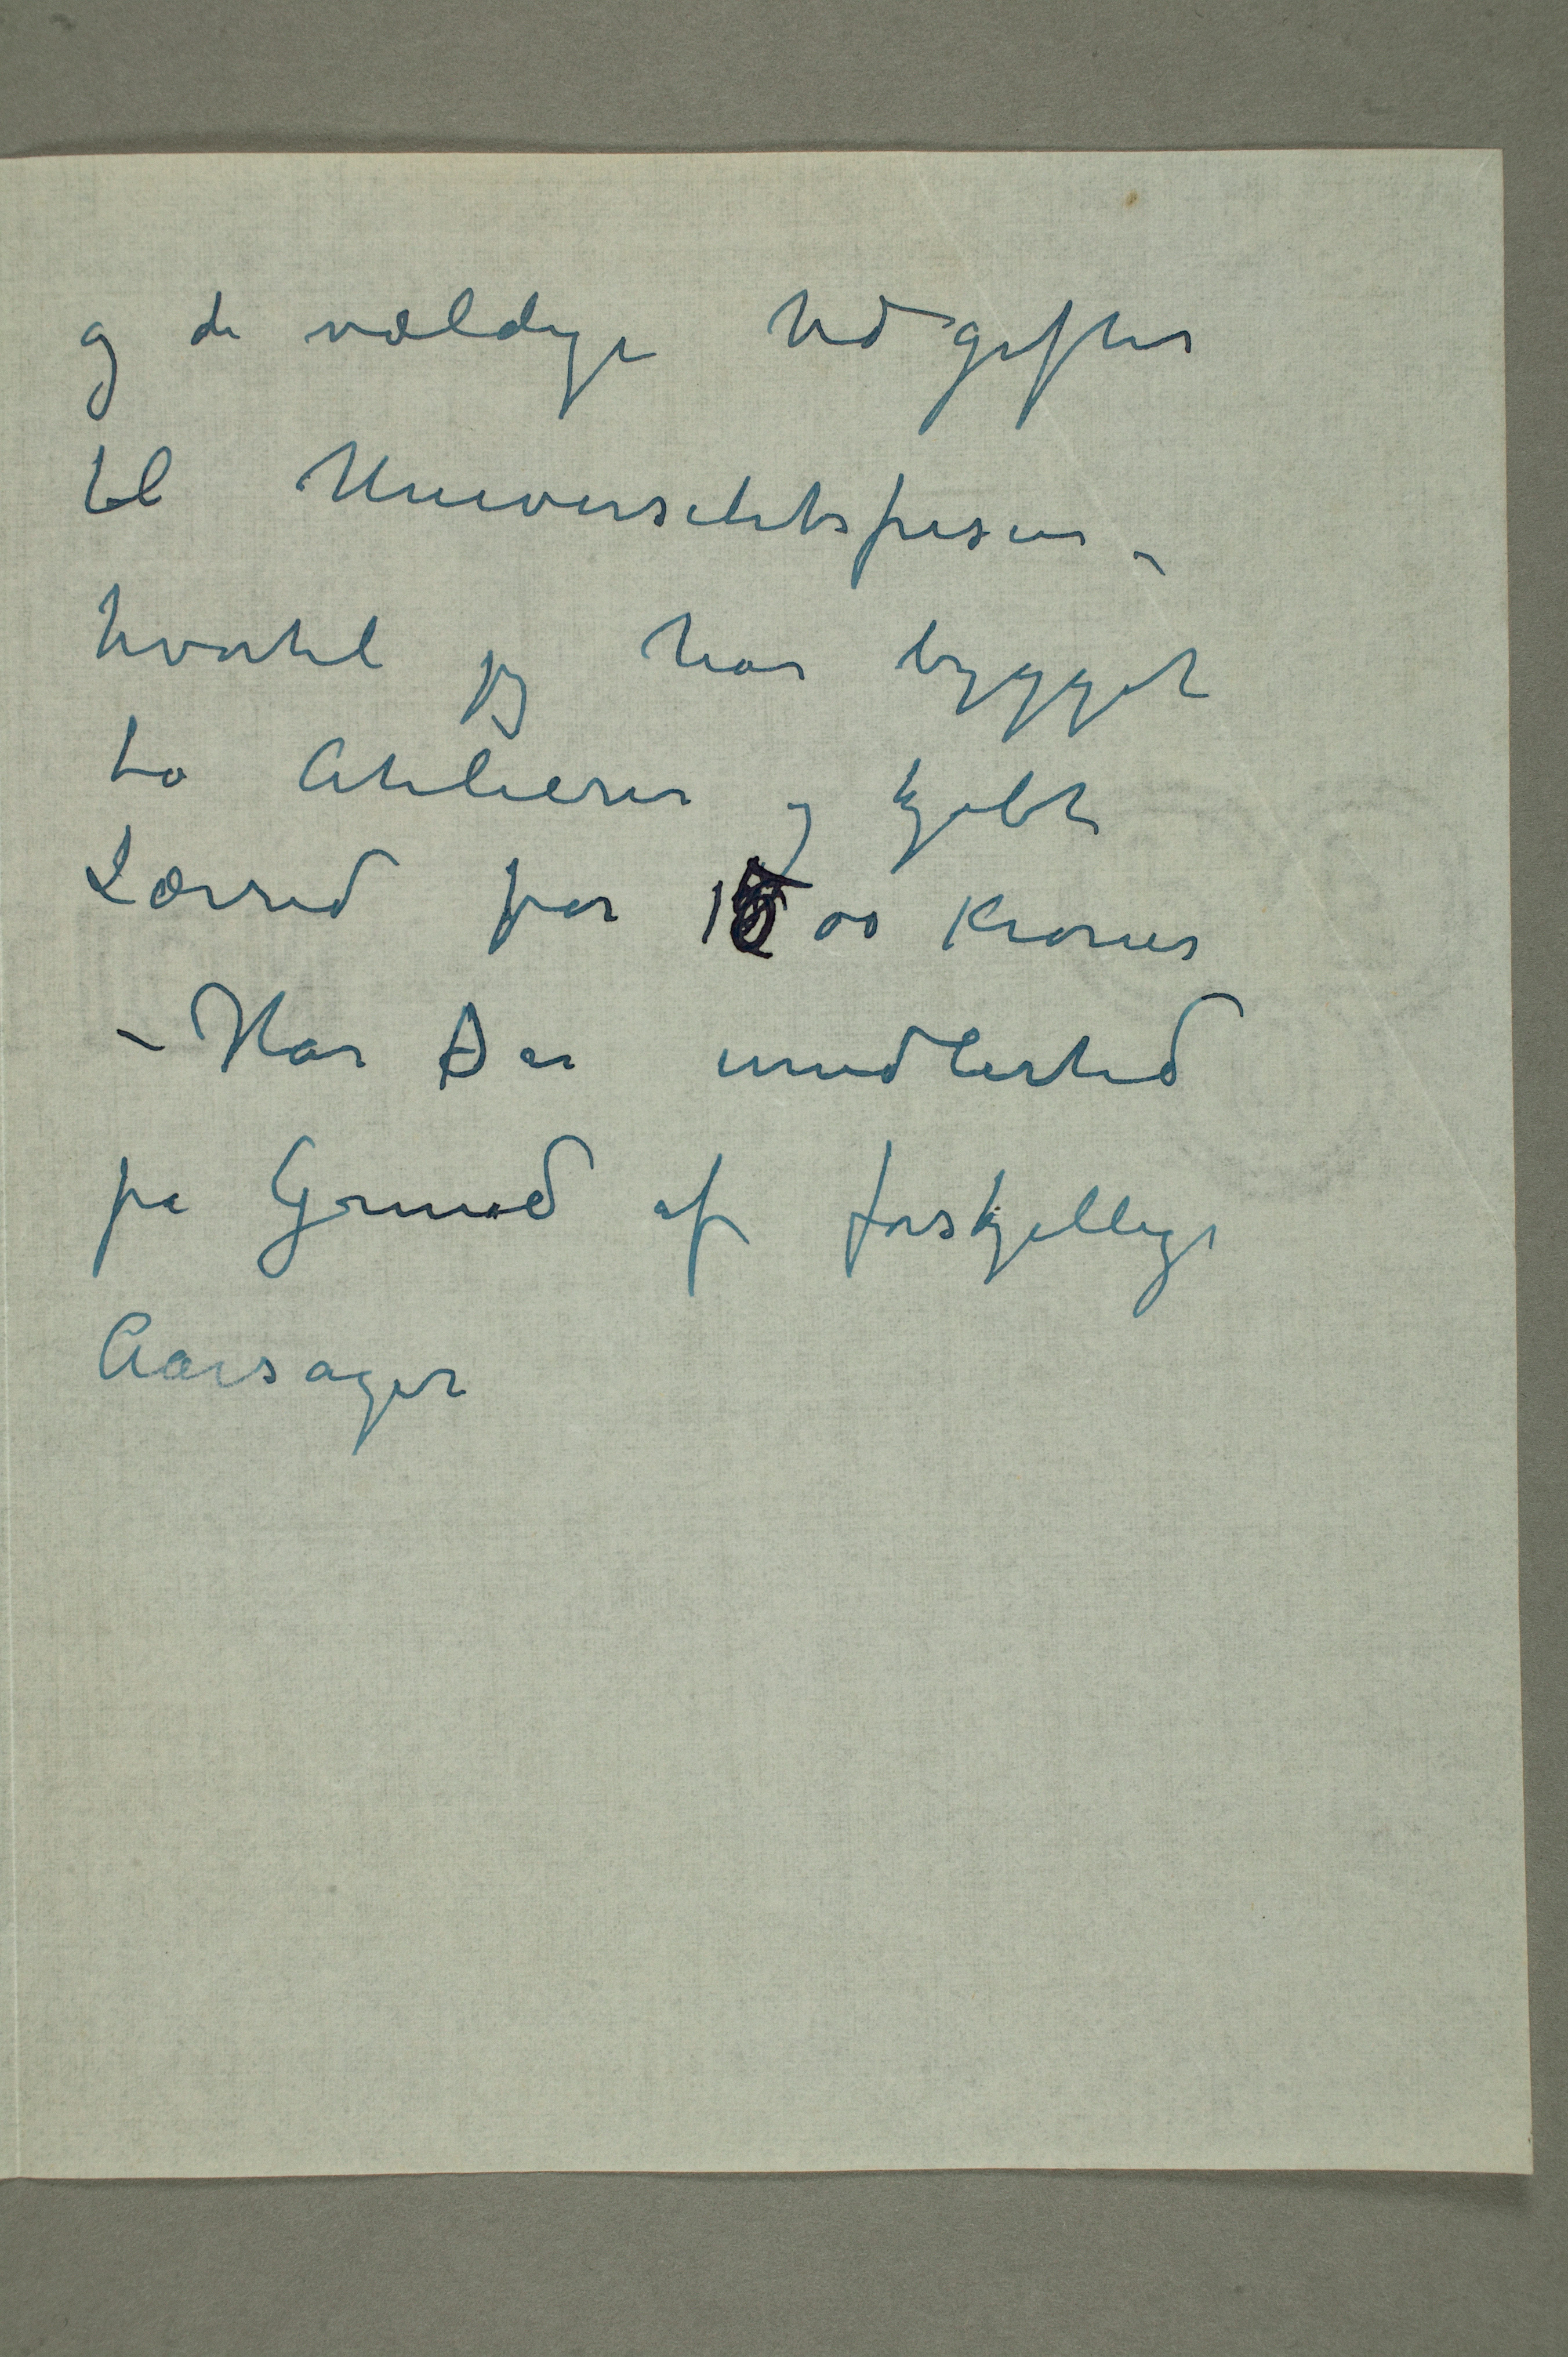 og de vældige Udgifter
til Universitetsfrisen –
hvortil jeg har bygget
to Atelierer og kjøbt
Lærred for 1500 Kroner
– Har De imidlertid
på Grund af forskjellige
Aarsager